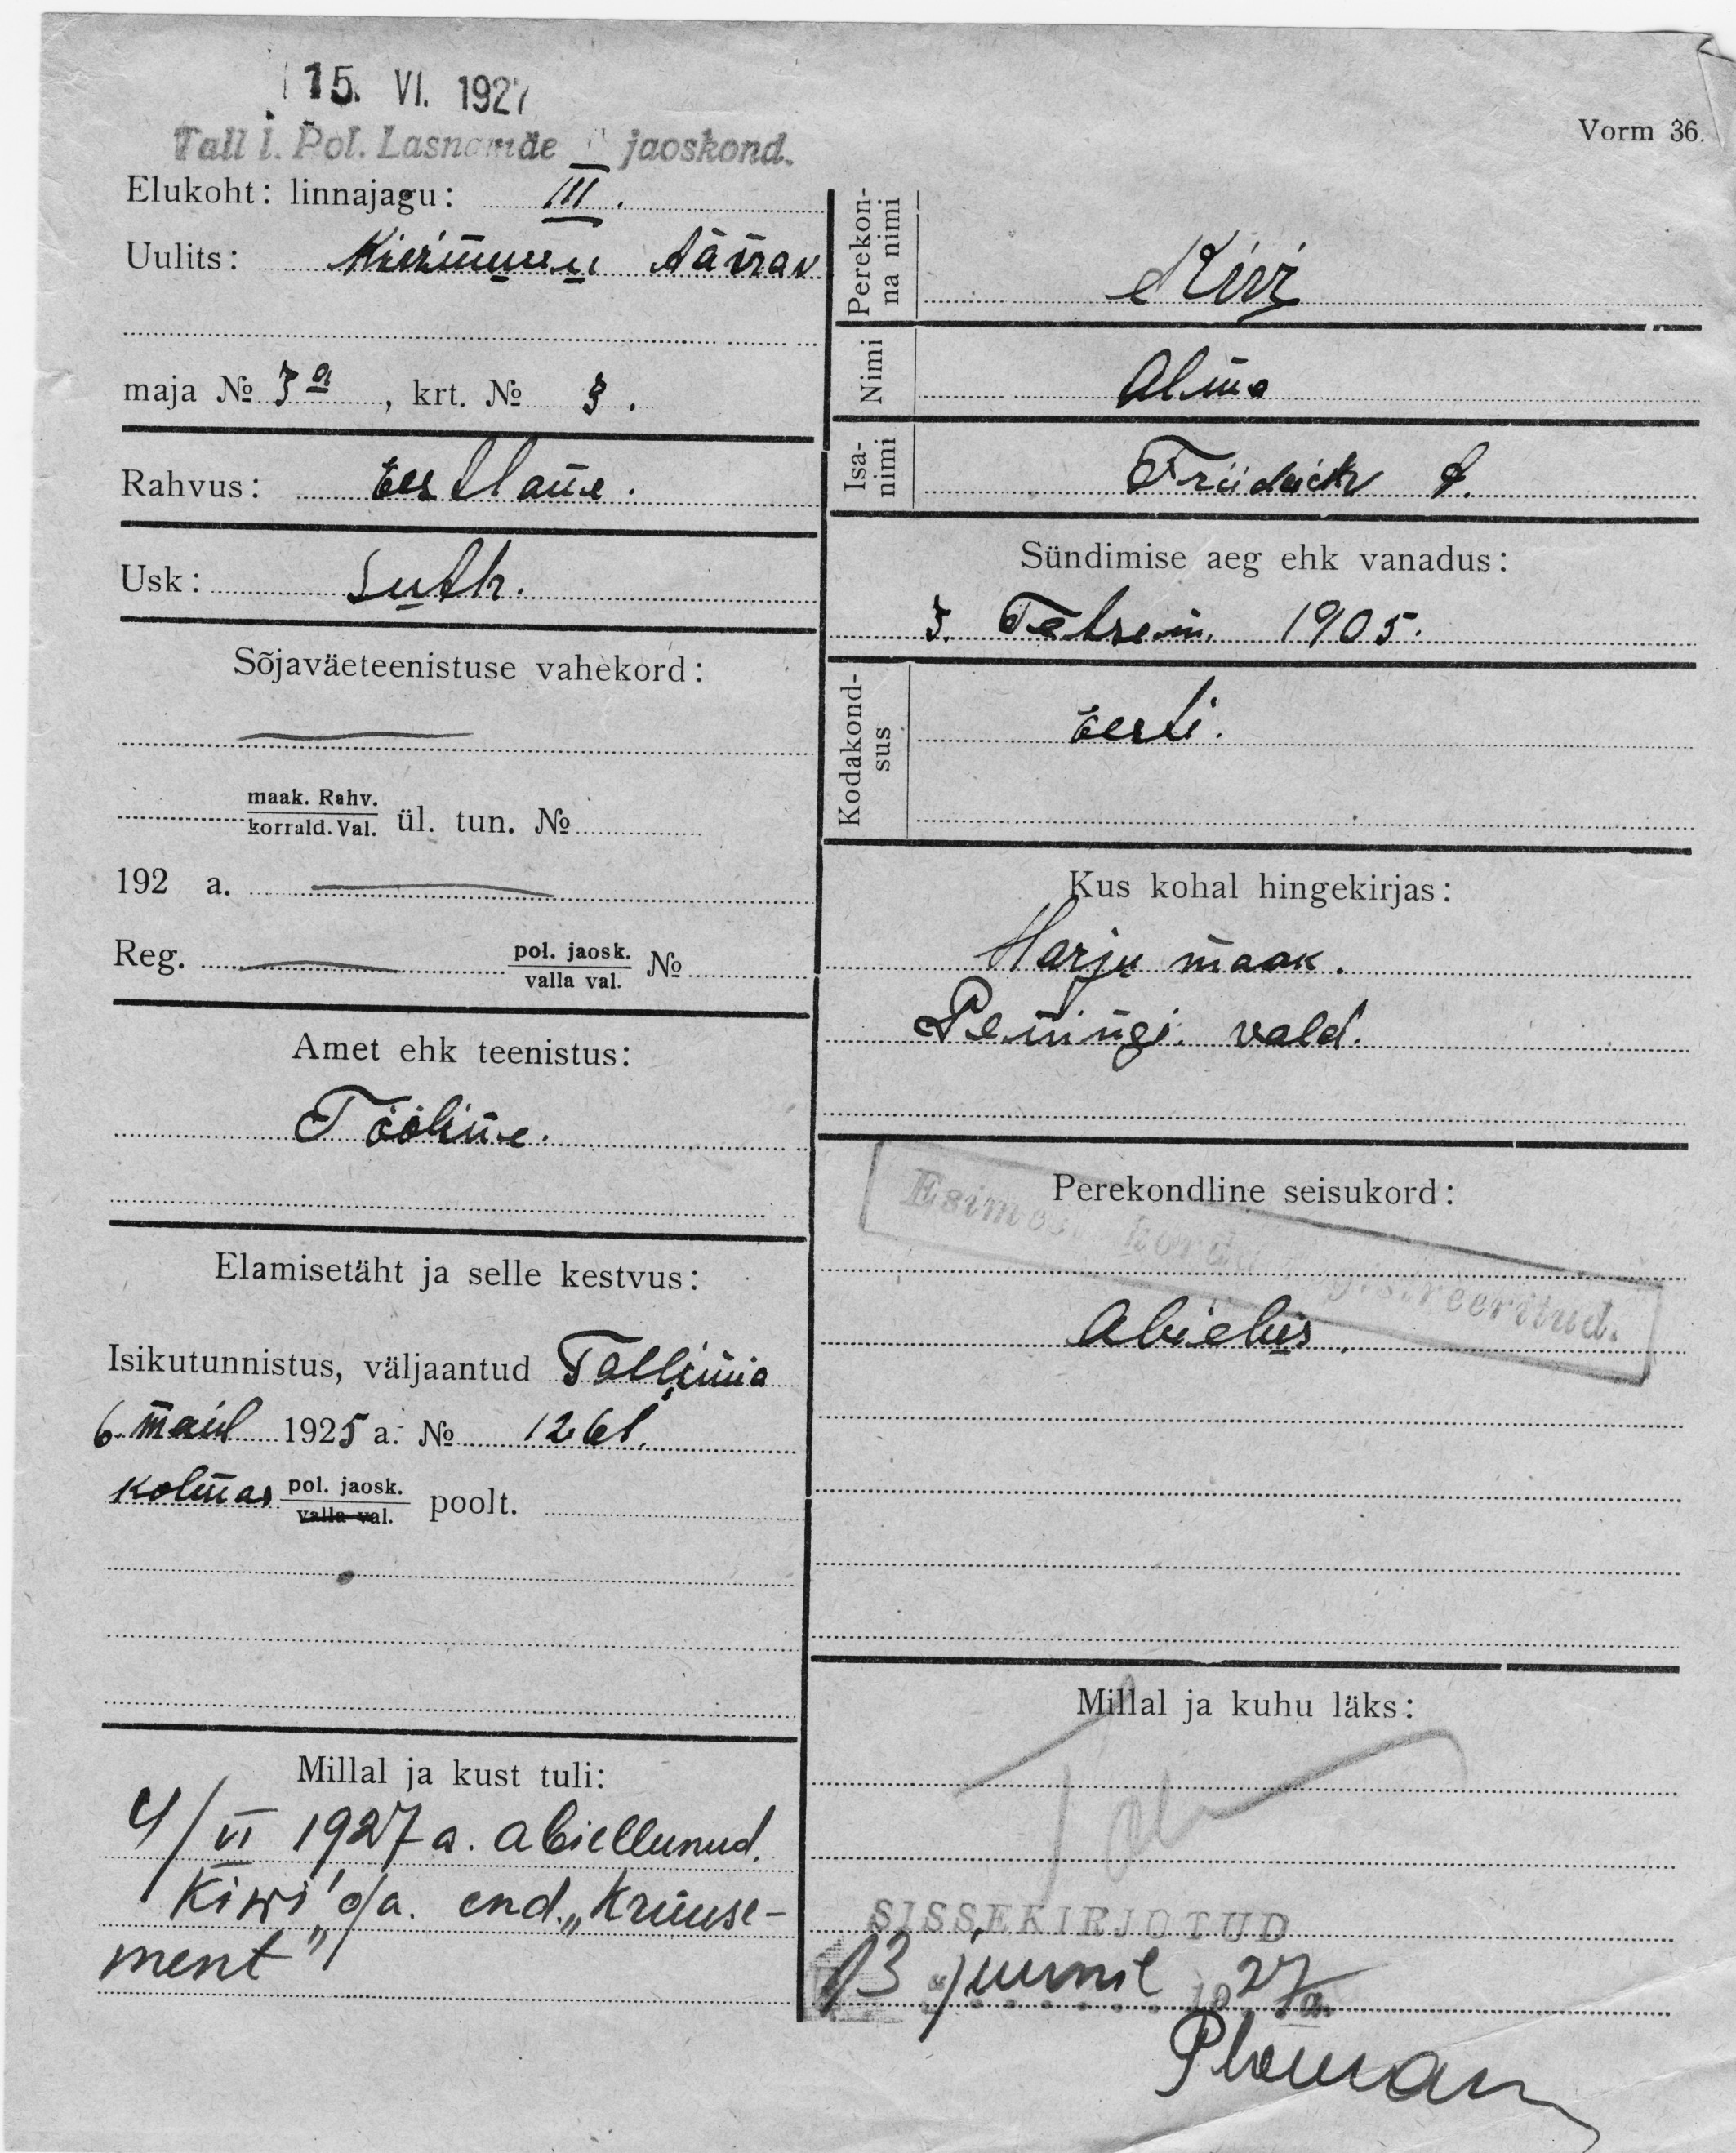 15. VI. 1927
Tall I. Pol. Lasnamäe jaoskond.
Vorm 36.
Elukoht: linnajagu: III.
Uulits: tänav
maja № 3a, krt. № 3.
Rahvus: Eestlane.
Usk: Luth.
Sõjaväeteenistuse vahekord:
maak. Rahv.
korrald. Val. ül. tun. №
192 a.
Reg. pol. jaosk.
valla val. №
Amet ehk teenistus:
Tööline.
Elamisetäht ja selle kestvus:
Isikutunnistus, väljaantud Tallinna
6. mail 1925 a. № 1261.
kolmas pol. jaosk.
valla val. poolt.
Millal ja kust tuli:
4/VI 1927 a. abiellunud.
"Kiwi'ga. end. „Krüuse-
ment"
Perekon-
na nimi
Kivi
Nimi
Alma
Isa-
nimi
Friidrich t.
Sündimise aeg ehk vanadus:
3. Febr. 1905.
Kodakond-
sus
Eesti.
Kus kohal hingekirjas:
Harju maak.
Peningi vald.
Perekondline seisukord:
Esimest korda registreeritud.
Abielus.
Millal ja kuhu läks:
SISSEKIRJOTUD
13 juunil 1927 a.